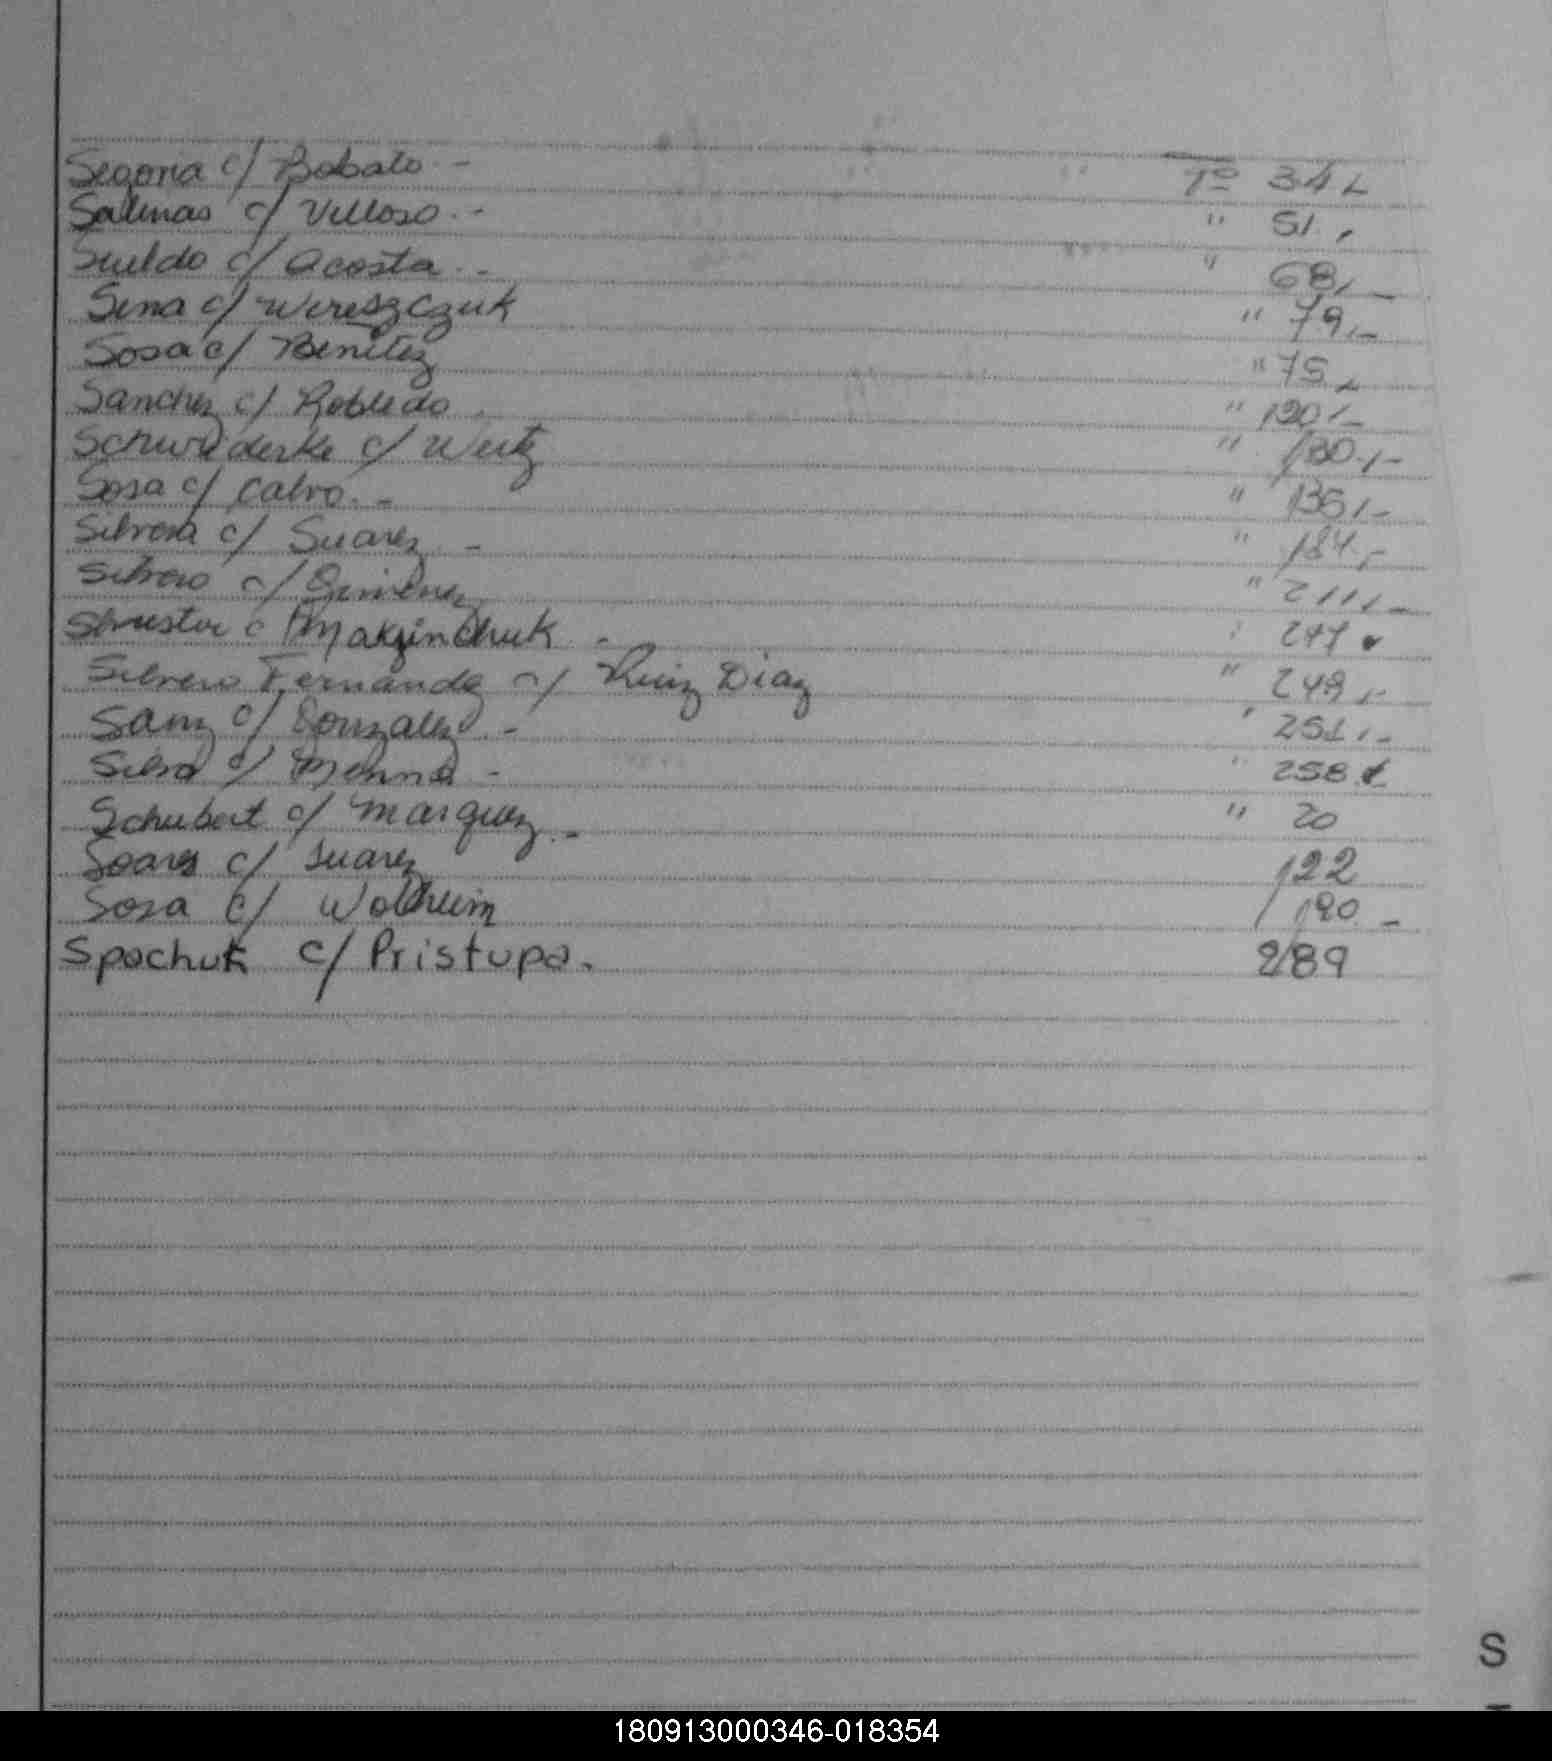 Segovia c/ Bobato.- Tº 34,-
Salinas c/ Villoso.- " 51,
Sueldo c/ Acosta.- " 68,-
Sena c/ Wereszczuk " 79,-
Sosa c/ Benitez " 75,-
Sanchez c/ Robledo. " 120,-
Schwiderke c/ Weitz " 130.,-
Sosa c/ Calvo.- " 135,-
Silvera c/ Suarez - " 184,-
Silvero c/ Gimenez " 211,-
c/ Makzinchuk -
Silvero Fernandez c/ Ruiz Diaz " 249,-
Sanz c/ Gonzalez.- " 251,-
Silva c/ Menna - " 258
Schubert c/ Marquez.- " 20
Soares c/ Suarez 122
Sosa c/ Wolheim 190 -
Spachuk c/ Pristupa. 289
S
180913000346-018354